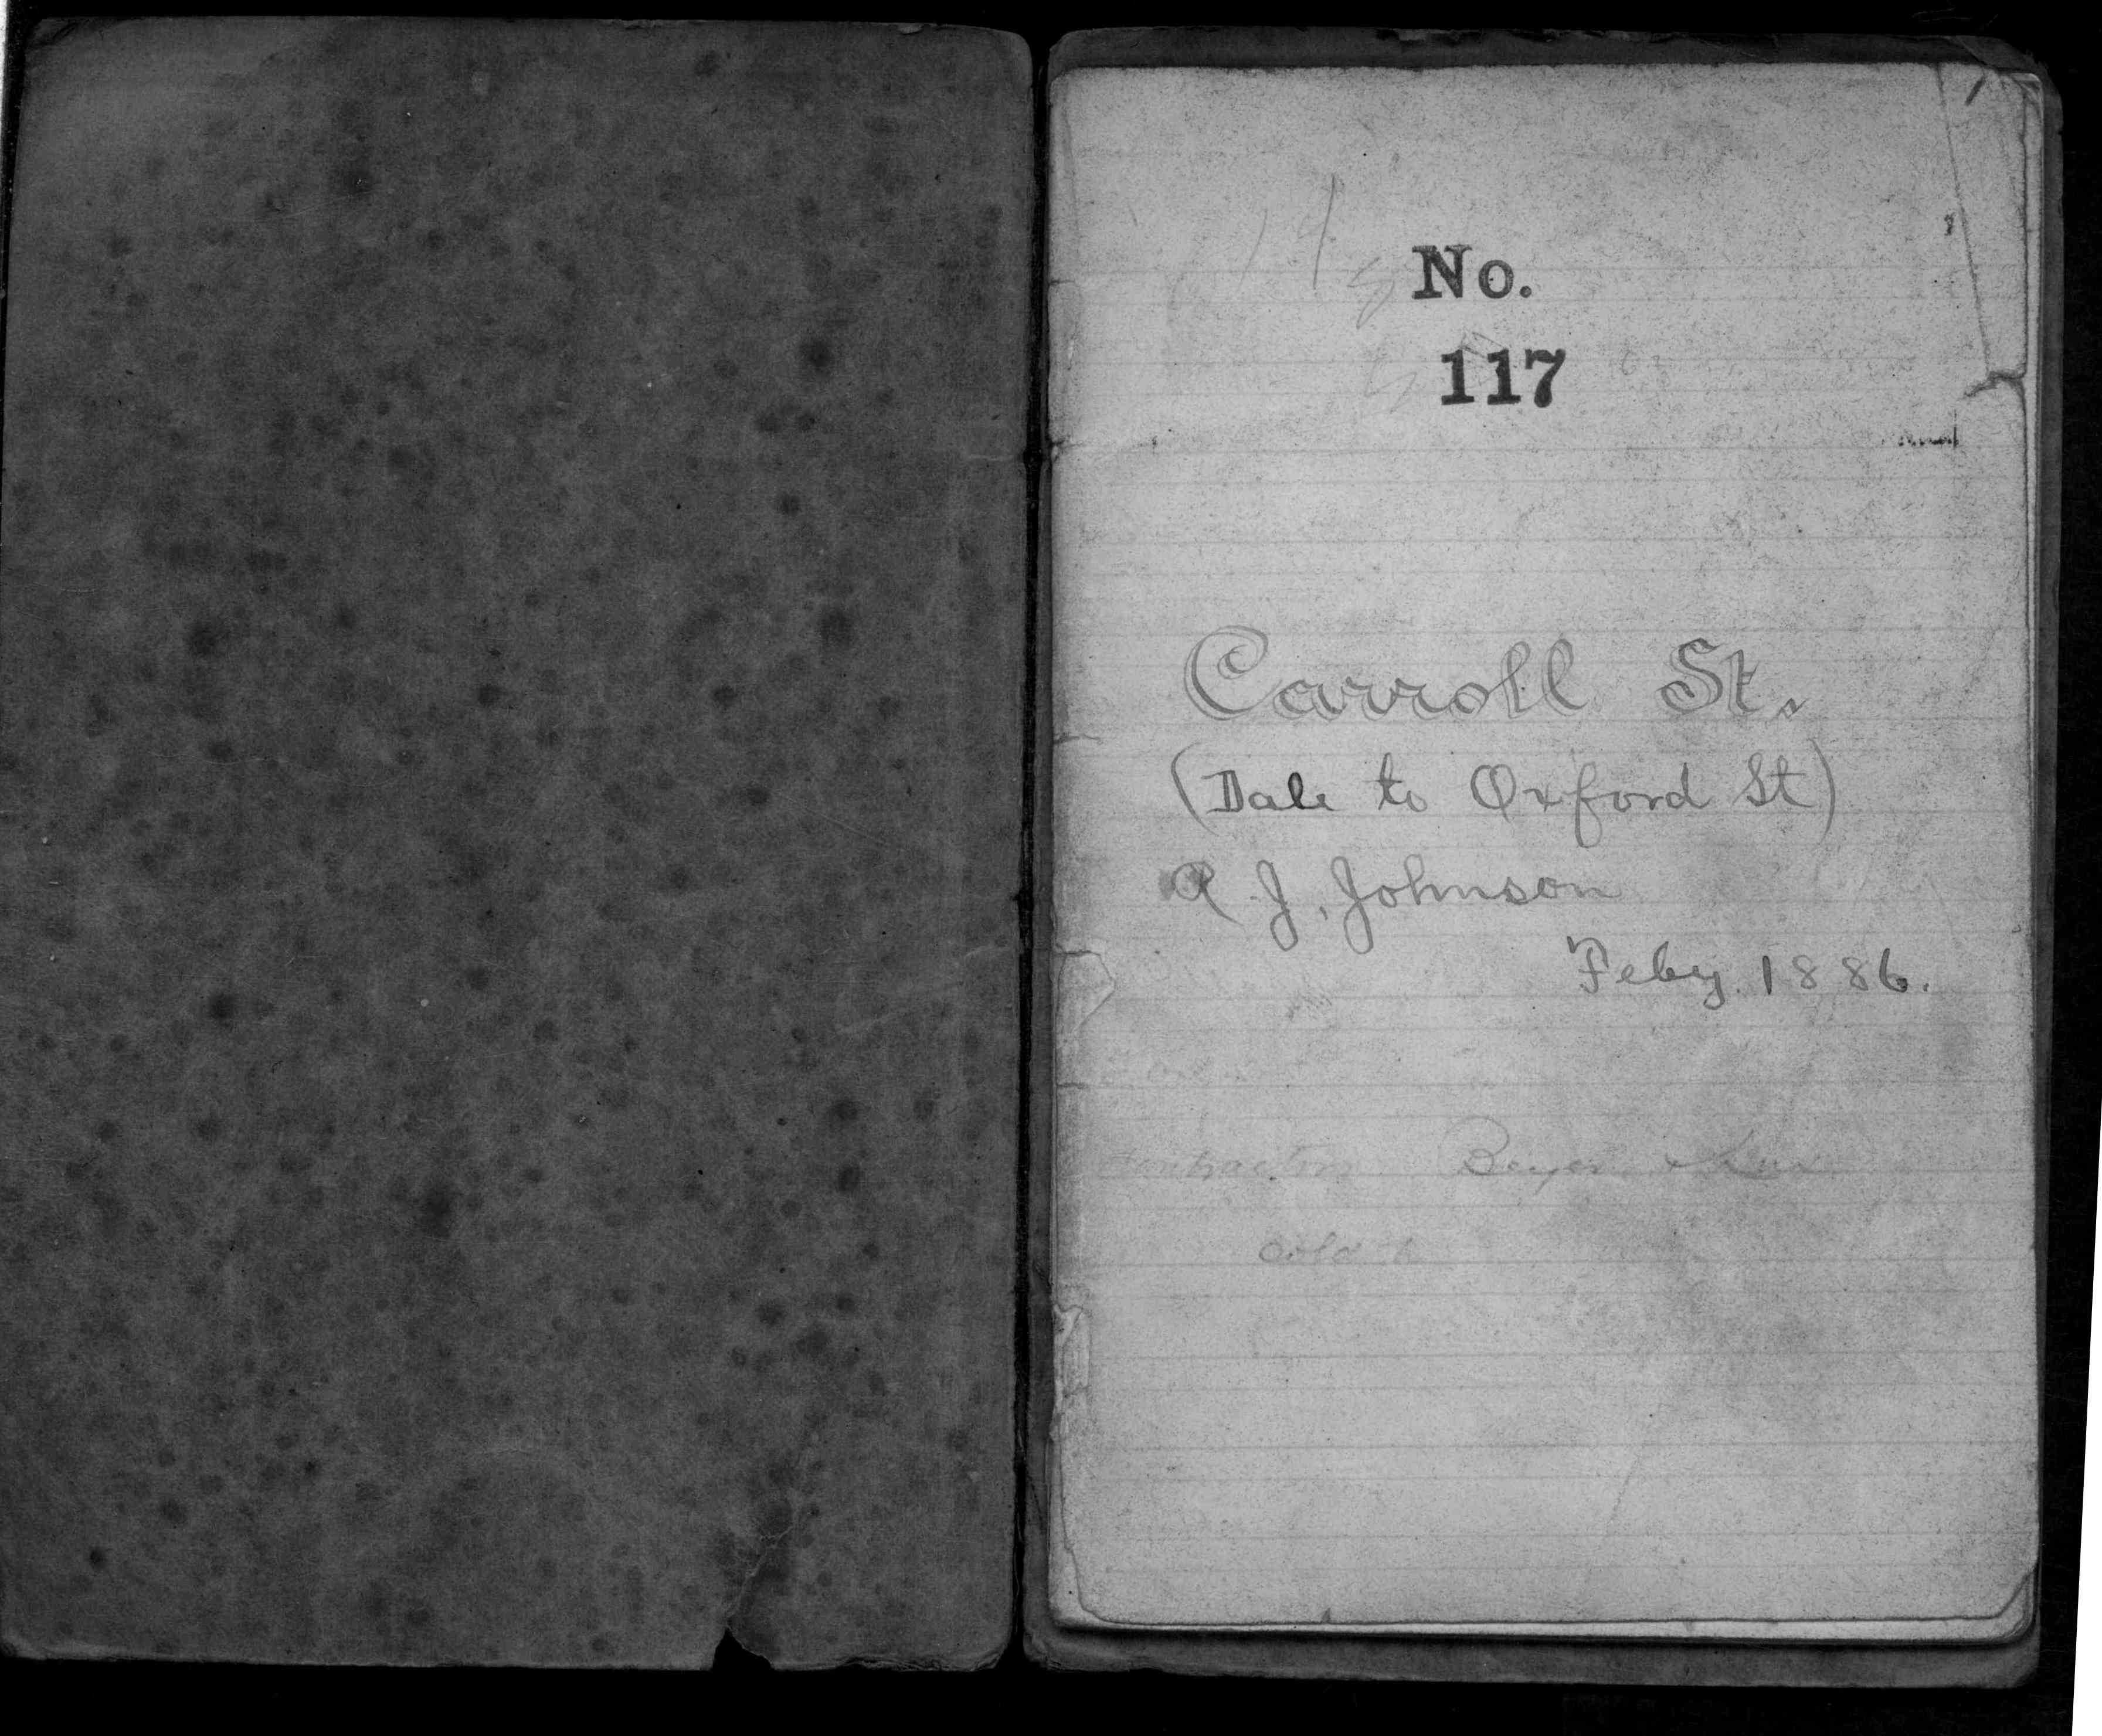 No.
117
Carroll St.
(Dale to Oxford St)
A. J. Johnson
Feby. 1886.
Beyer